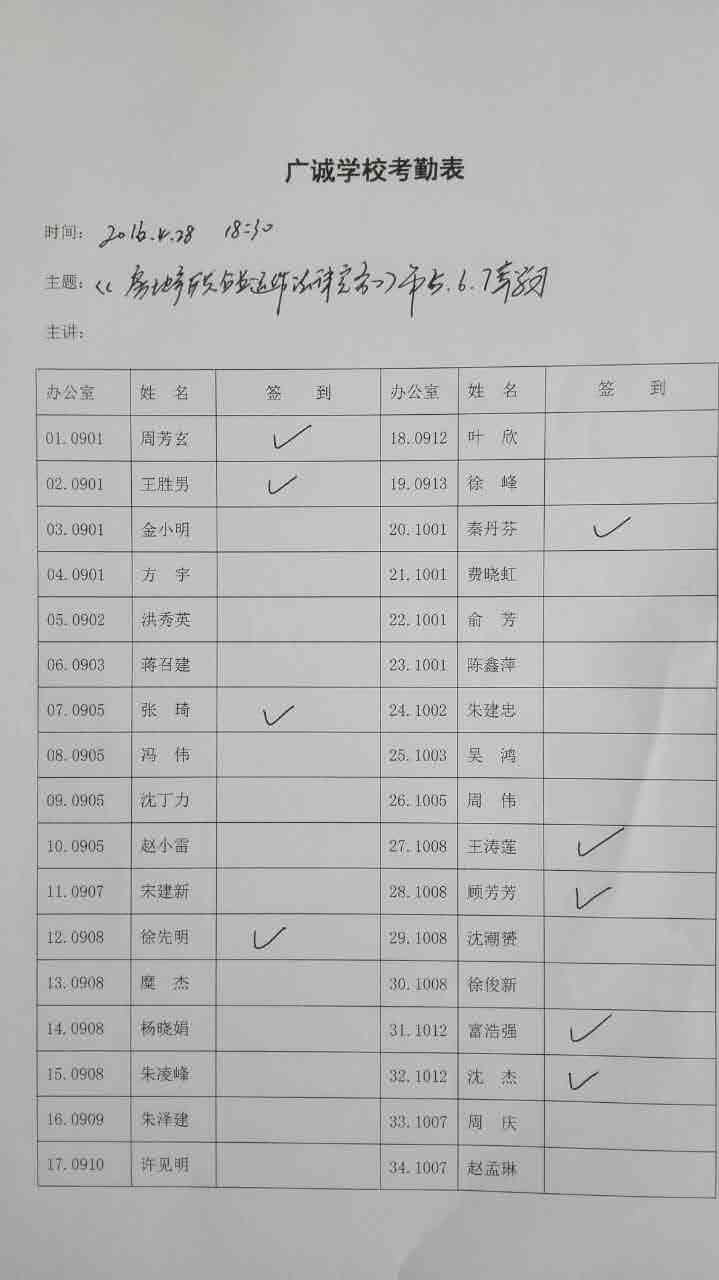 广诚学校考勤表
时间: 2016.4.28 18:30
主题: <<房地产开发企业运作法律实务>>第5.6.7章学习
主讲:
办公室 姓 名 签 到 办公室 姓 名 签 到
01.0901 周芳玄 ✓ 18.0912 叶 欣
02.0901 王胜男 ✓ 19.0913 徐 峰
03.0901 金小明 20.1001 秦丹芬 ✓
04.0901 方 宇 21.1001 费晓虹
05.0902 洪秀英 22.1001 俞 芳
06.0903 蒋召建 23.1001 陈鑫萍
07.0905 张 琦 ✓ 24.1002 朱建忠
08.0905 冯 伟 25.1003 吴 鸿
09.0905 沈丁力 26.1005 周 伟
10.0905 赵小雷 27.1008 王涛莲 ✓
11.0907 宋建新 28.1008 顾芳芳 ✓
12.0908 徐先明 ✓ 29.1008 沈潮赟
13.0908 糜 杰 30.1008 徐俊新
14.0908 杨晓娟 31.1012 富浩强 ✓
15.0908 朱凌峰 32.1012 沈 杰 ✓
16.0909 朱泽建 33.1007 周 庆
17.0910 许见明 34.1007 赵孟琳